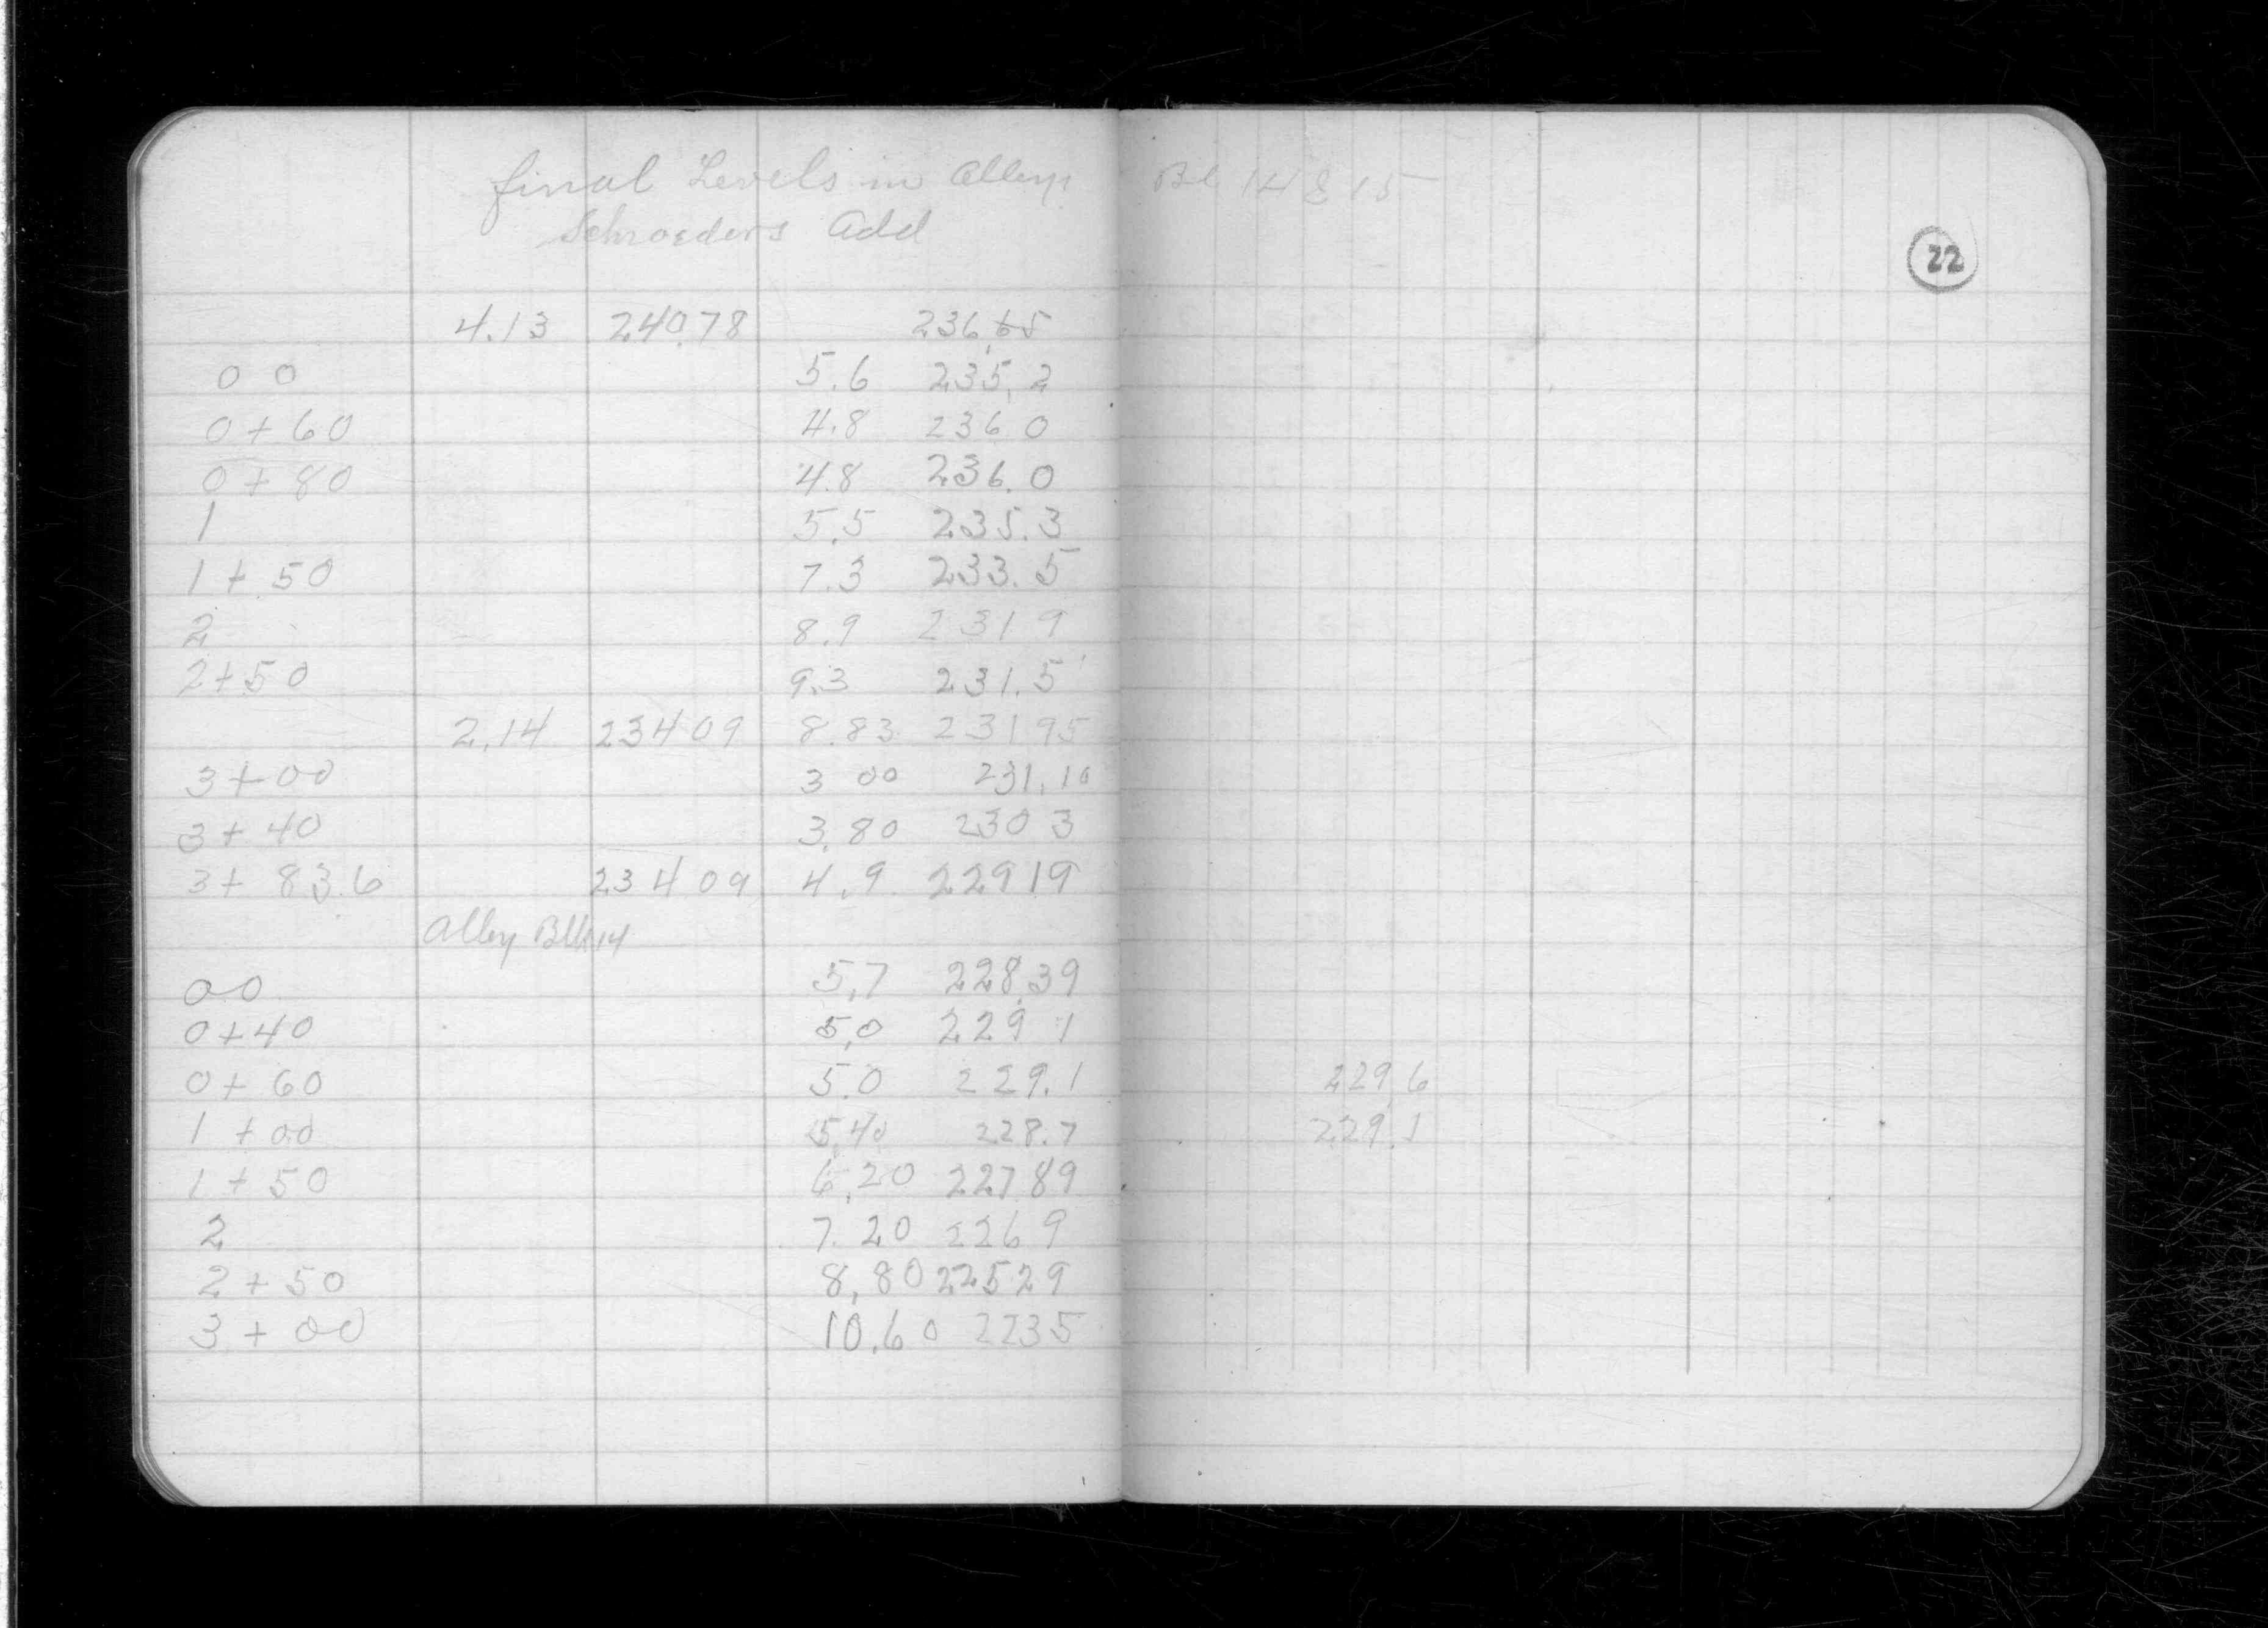 final Levels in Alleys Bl 14 & 15
Schroeders Add
22
4.13 240.78 236.65
0 0 5.6 235.2
0+60 4.8 236 0
0+80 4.8 236.0
1 5.5 235.3
1+50 7.3 233.5
2 8.9 231 9
2+50 9.3 231.5
2.14 234 09 8.83 231 95
3+00 3 00 231.10
3+40 3.80 230 3
3+ 83.6 234 09 4.9 229 19
Alley Blk 14
00 5.7 228.39
0+40 5.0 229 1
0+60 5.0 229.1 229 6
1+00 5.40 228.7 229.1
1+50 6.20 227 89
2 7.20 226 9
2+50 8.80 225 29
3+00 10.60 223 5